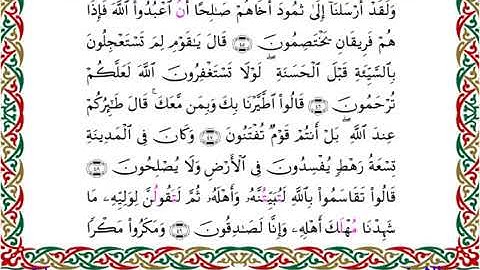 وَلَقَدْ أَرْسَلْنَآ إِلَىٰ ثَمُودَ أَخَاهُمْ صَٰلِحًا أَنُ ٱعْبُدُواْ ٱللَّهَ فَإِذَا
هُمْ فَرِيقَانِ يَخْتَصِمُونَ ۝٤٥ قَالَ يَٰقَوْمِ لِمَ تَسْتَعْجِلُونَ
بِٱلسَّيِّئَةِ قَبْلَ ٱلْحَسَنَةِ ۖ لَوْلَا تَسْتَغْفِرُونَ ٱللَّهَ لَعَلَّكُمْ
تُرْحَمُونَ ۝٤٦ قَالُواْ ٱطَّيَّرْنَا بِكَ وَبِمَن مَّعَكَ ۚ قَالَ طَٰٓئِرُكُمْ
عِندَ ٱللَّهِ ۖ بَلْ أَنتُمْ قَوْمٌ تُفْتَنُونَ ۝٤٧ وَكَانَ فِى ٱلْمَدِينَةِ
تِسْعَةُ رَهْطٍ يُفْسِدُونَ فِى ٱلْأَرْضِ وَلَا يُصْلِحُونَ ۝٤٨
قَالُواْ تَقَاسَمُواْ بِٱللَّهِ لَتُبَيِّتُنَّهُۥ وَأَهْلَهُۥ ثُمَّ لَتَقُولُنَّ لِوَلِيِّهِۦ مَا
شَهِدْنَا مُهْلَكَ أَهْلِهِۦ وَإِنَّا لَصَٰدِقُونَ ۝٤٩ وَمَكَرُواْ مَكْرًا